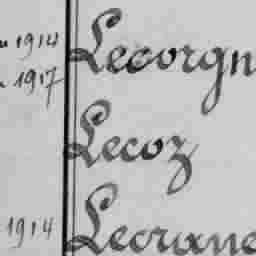 1914 Lecorgn
1917
Lecoz
1914 Lecrane